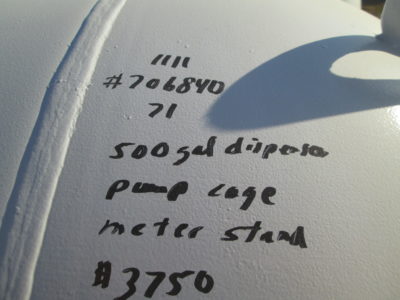 1111
#706840
71
500gal dispenser
pump cage
meter stand
$3750